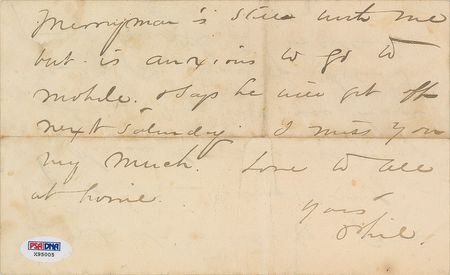 Merryman is still with me
but is anxious to go to
mobile. Says he will get off
next Saturday. I miss you
very much. Love to all
at home.
yours
Phil.
PSA DNA
X95005